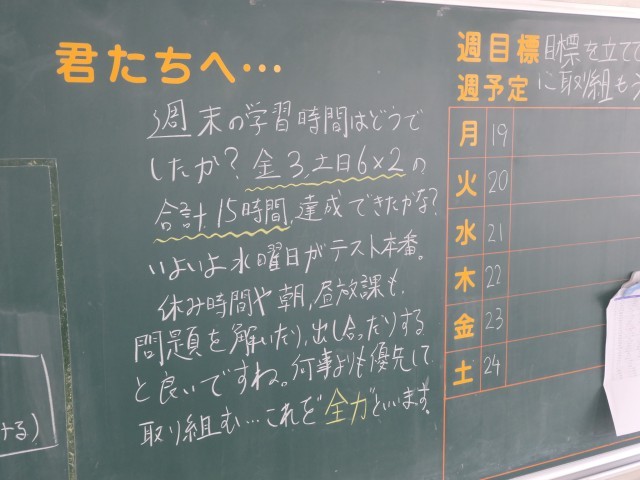 君たちへ…
週末の学習時間はどうで
したか?金3,土日6×2の
合計15時間,達成できたかな?
いよいよ水曜日がテスト本番。
休み時間や朝,昼放課も,
問題を解いたり,出し合ったりする
と良いですね。何事よりも優先して
取り組む…これを"全力"といいます。
週目標 目標を立てて
週予定 に取り組もう
月 19
火 20
水 21
木 22
金 23
土 24
ける)